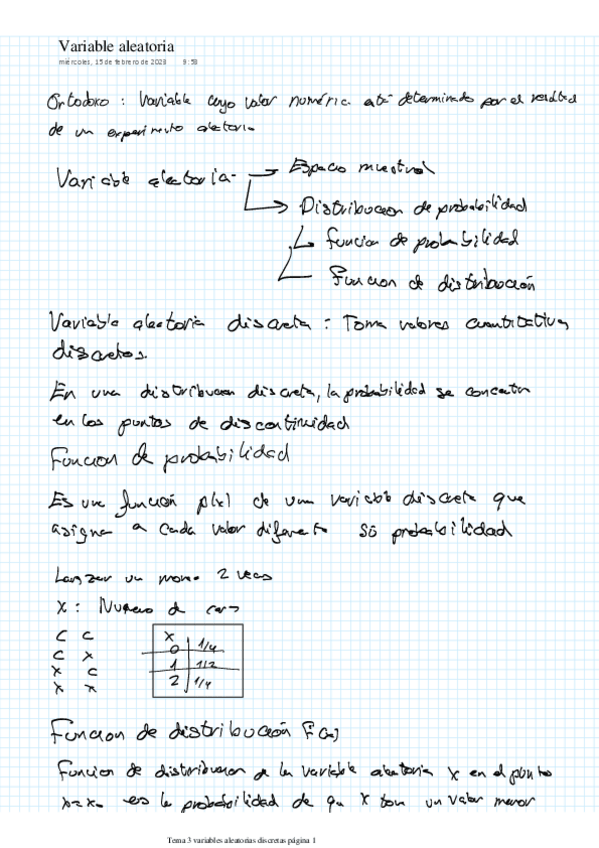 Variable aleatoria
miércoles, 15 de febrero de 2023 9:53
Ortodoxo : Variable cuyo valor numéric. está determinado por el resultad
de un experimento aleatorio
Variable aleatoria Espacio muestral
Distribucion de probabilidad
funcion de probabilidad
Funcion de distribución
Variable aleatoria discreta : Toma valores cuantitativos
discretos.
En una distribucion discreta, la probabilidad se concentra
en los puntos de discontinuidad
Funcion de probabilidad
Es una función p(x) de una variable discreta que
asigna a cada valor diferente sú probabilidad
Lanzar un mone. 2 veces
X : Numero de caras
C C
C X
X C
X X
X
0 1/4
1 1/2
2 1/4
Funcion de distribución F(x)
Funcion de distribucion de la variable aleatoria X en el punto
x=x. es la probabilidad de que X tom un valor menor
Tema 3 variables aleatorias discretas página 1